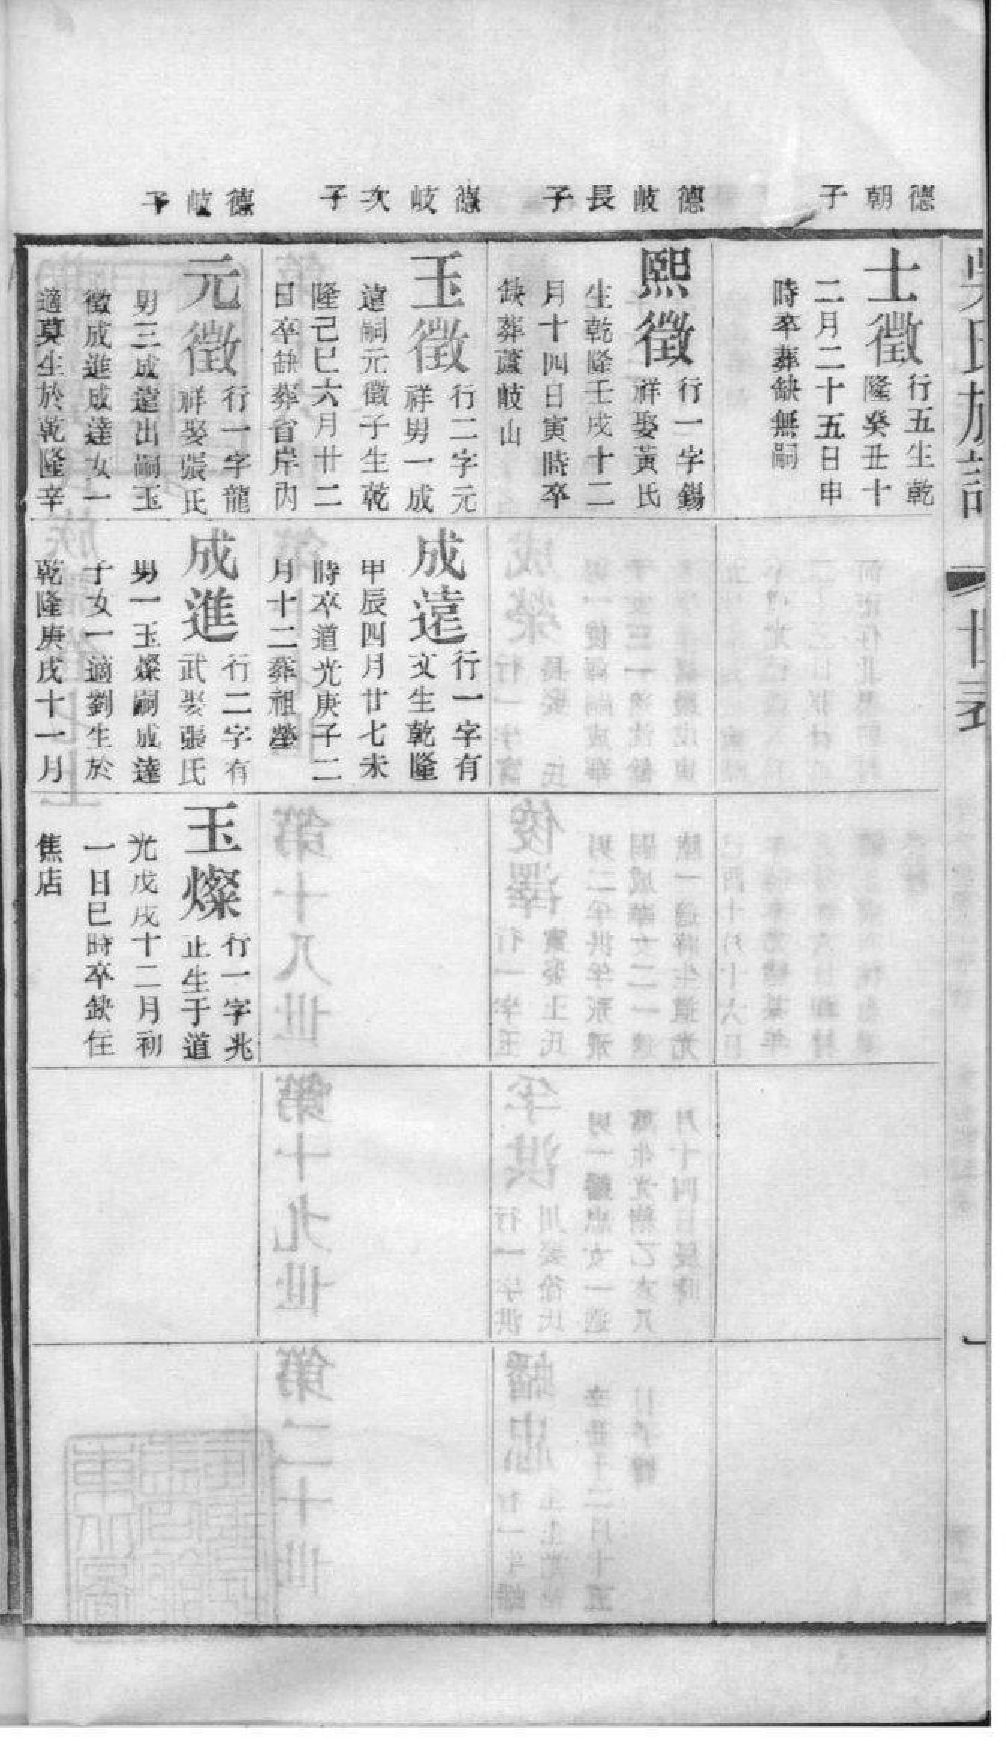 吳氏族譜
世表
德朝子
士徵
行五生乾
隆癸丑十
二月二十五日申
時卒葬缺無嗣
德岐長子
熙徵
行一字錫
祥娶黃氏
生乾隆壬戌十二
月十四日寅時卒
缺葬蘆岐山
德岐次子
玉徵
行二字元
祥男一成
遠嗣元徵子生乾
隆己巳六月廿二
日卒缺葬省岸內
成遠
行一字有
文生乾隆
甲辰四月廿七未
時卒道光庚子二
月十二葬祖塋
德岐子
元徵
行一字龍
祥娶張氏
男三成遠出嗣玉
徵成進成達女一
適莫生於乾隆辛
成進
行二字有
武娶張氏
男一玉燦嗣成達
子女一適劉生於
乾隆庚戌十一月
玉燦
行一字兆
止生于道
光戊戌十二月初
一日巳時卒缺住
焦店